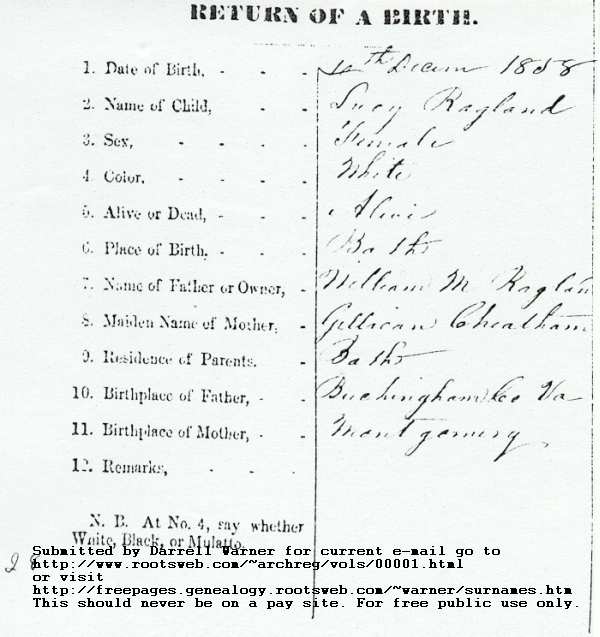 RETURN OF A BIRTH.
1. Date of Birth, - - - th Decem 1858
2. Name of Child, - - Lucy Ragland
3. Sex, - - - - Female
4. Color, - - - - White
5. Alive or Dead, - - - Alive
6. Place of Birth, - - - Bath
7. Name of Father or Owner, - William M Raglan
8. Maiden Name of Mother, - Gillican Cheatham
9. Residence of Parents, - Bath
10. Birthplace of Father, - - Buckingham Co Va
11. Birthplace of Mother, - - Montgomery
12. Remarks, - - -
N. B. At No. 4, say whether
White, Black, or Mulatto.
28
Submitted by Darrell Warner for current e-mail go to
http://www.rootsweb.com/~archreg/vols/00001.html
or visit
http://freepages.genealogy.rootsweb.com/~warner/surnames.htm
This should never be on a pay site. For free public use only.